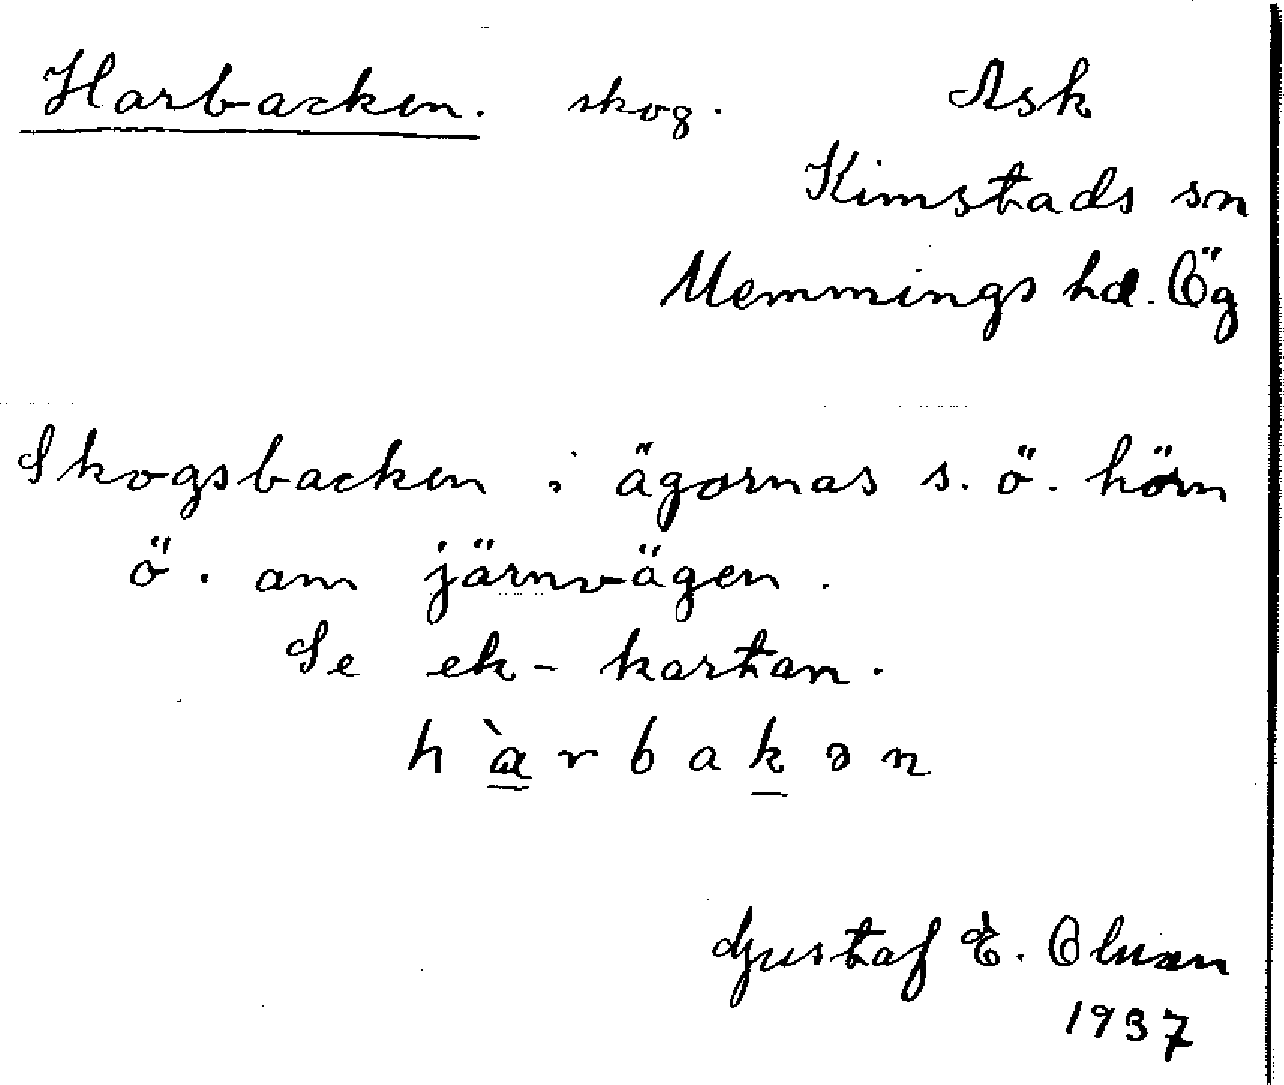 Harbacken. skog. Ask
Kimstads sn
Memmings hd. Ög
Skogsbacken i ägornas s. ö. hörn
ö. om järnvägen.
Se ek-kartan.
hàrbakən
Gustaf E. Olsson
1937